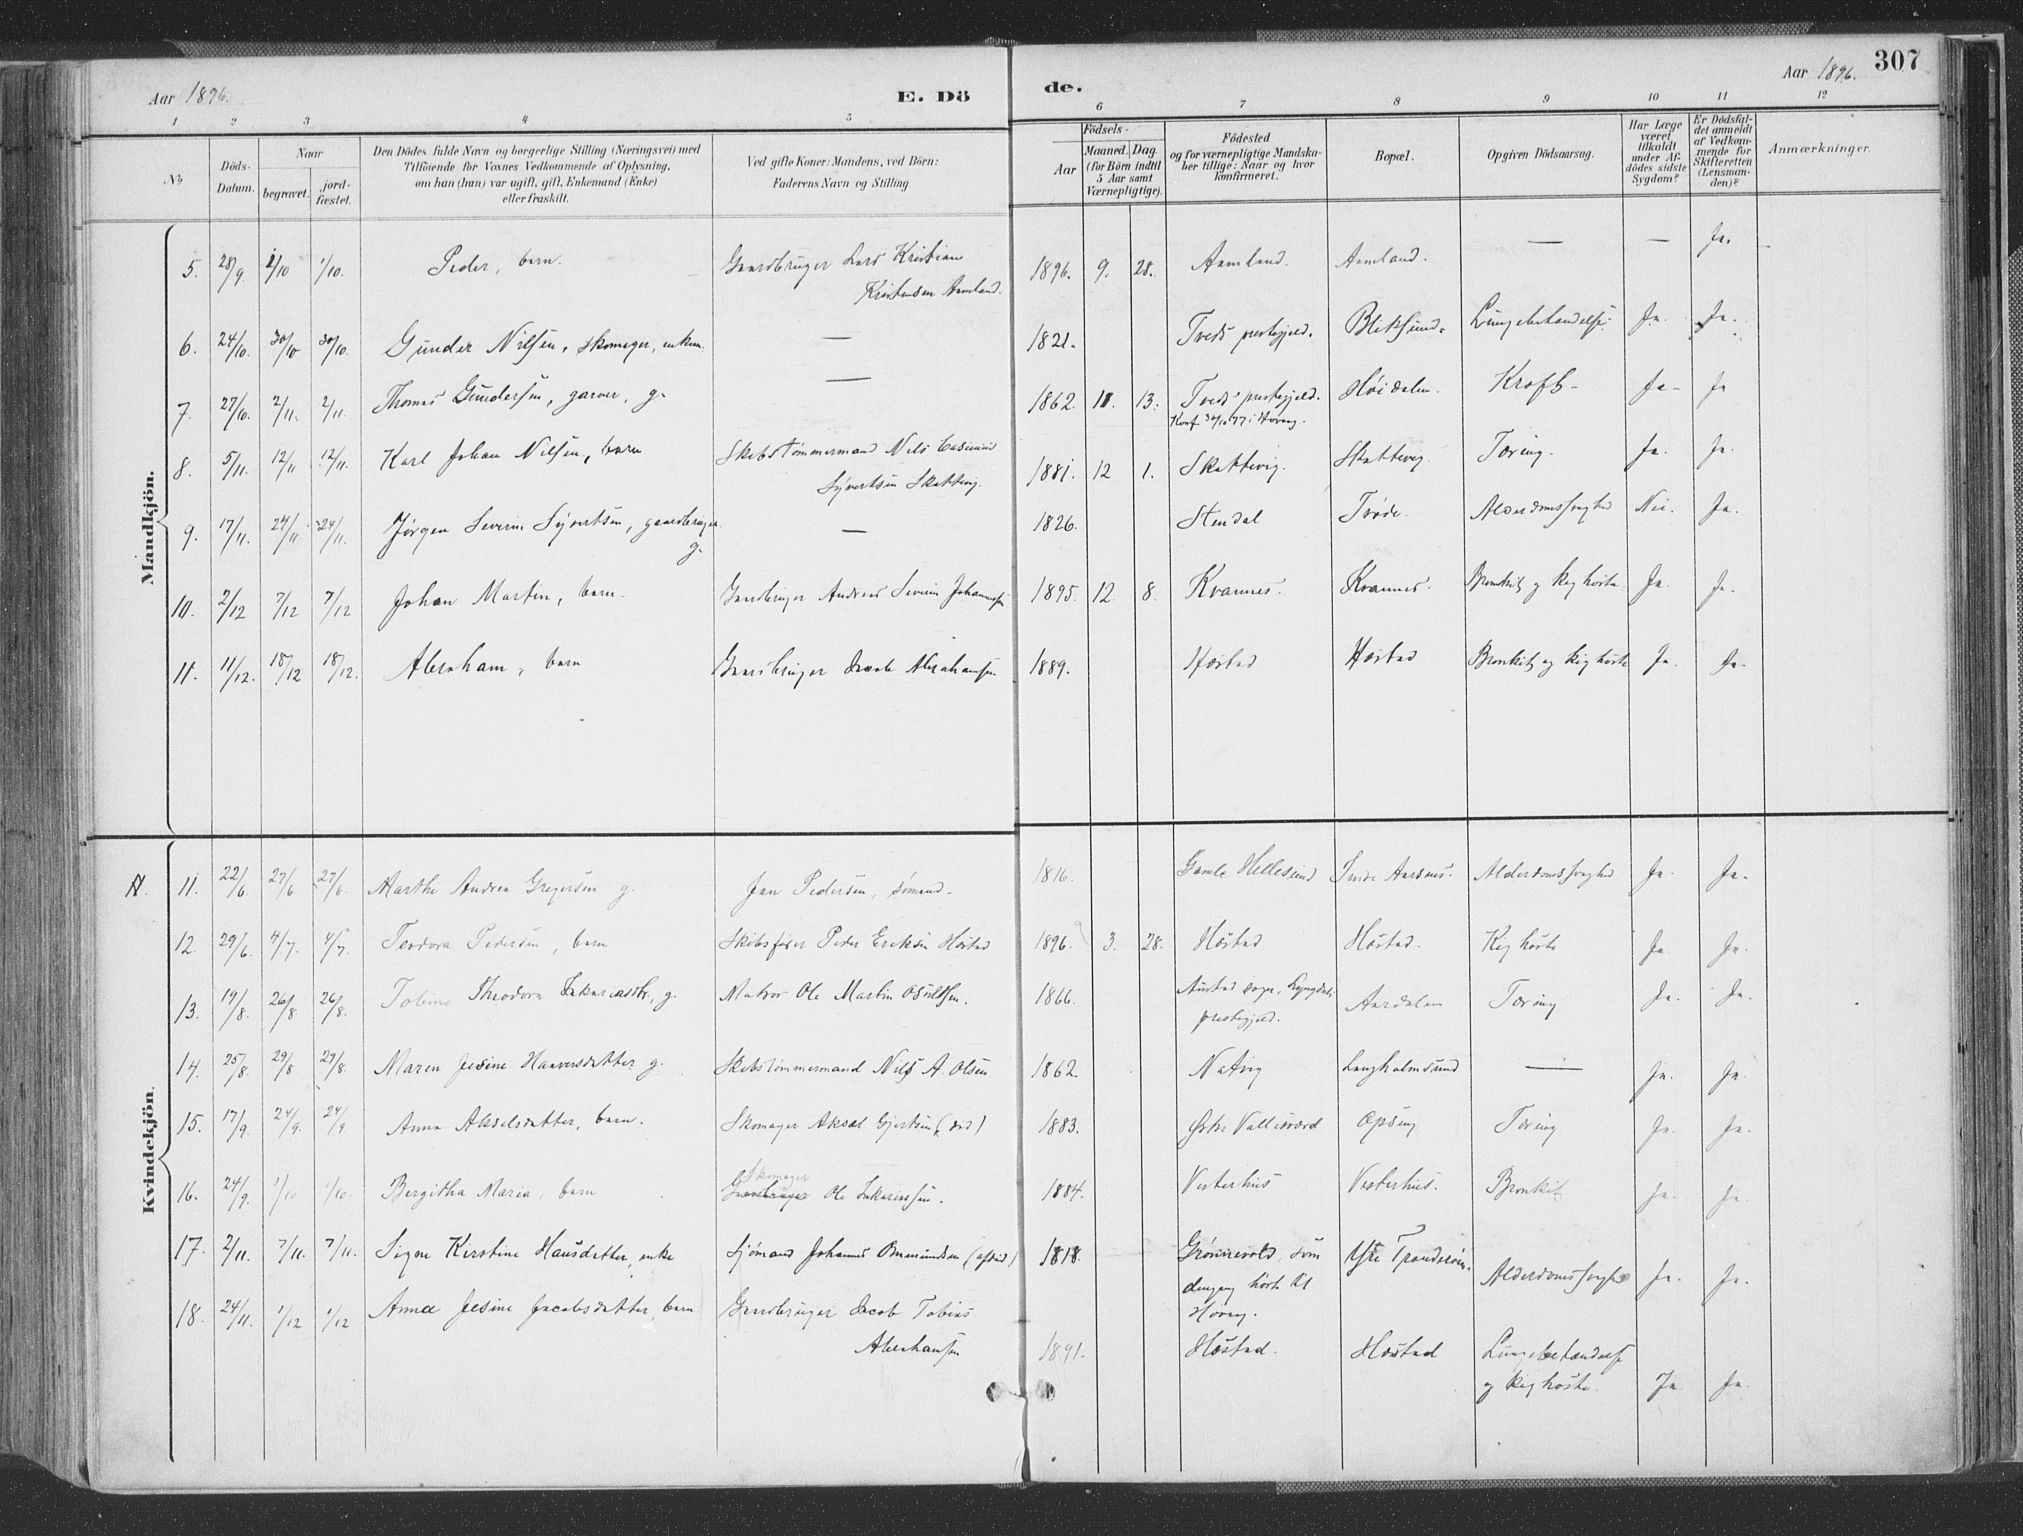 307
Aar 1896.
E. Dö
de.
Aar 1896.
1 2 3 4 5 6 7 8 9 10 11 12
No
Döds-
Datum.
Naar
begravet.
jord-
fæstet.
Den Dödes fulde Navn og borgerlige Stilling (Næringsvei) med
Tilföiende for Voxnes Vedkommende af Oplysning,
om han (hun) var ugift, gift, Enkemand (Enke)
eller fraskilt.
Ved gifte Koner: Mandens, ved Börn:
Faderens Navn og Stilling
Födsels-
Aar
Maaned. Dag.
(for Börn indtil
5 Aar samt
Værnepligtige).
Födested
og for værnepligtige Mandska-
ber tillige: Naar og hvor
konfirmeret.
Bopæl.
Opgiven Dödsaarsag.
Har Læge
været
tilkaldt
under Af-
dödes sidste
Sygdom?
Er Dödsfal-
det anmeldt
af Vedkom-
mende for
Skifteretten
(Lensman-
den)?
Anmærkninger.
Mandkjön.
5. 28/9. 1/10 1/10. Peder, barn. Gaardbruger Lars Kristian 1896. 9. 28. Aamland. Aamland. — — Ja.
Kristensen Aamland.
6. 24/10. 30/10 30/10. Gunder Nilsen, Skomager, enkem. — 1821. Tveds prestegjeld. Bliksund. Lungebetændelse. Ja. Ja.
7. 27/10. 2/11. 2/11. Thomas Gundersen, garver, g. — 1862. 11. 13. Tveds prestegjeld. Høidalen. Ja. Ja
Konf. 30/10 77 i Høvåg.
8. 5/11. 12/11 12/11. Karl Johan Nilsen, barn Skibstømmermand Nils Casimir 1881. 12 1. Skattevig. Skattevig. Tæring. Ja. Ja.
Syvertsen Skattevig.
9. 17/11. 24/11 24/11. Jørgen Severin Syvertsen, gaardbruger — 1826. Stendal Trøde. Alderdomssvaghed Nei. Ja.
g.
10. 2/12 7/12 7/12 Johan Martin, barn. Gaardbruger Andreas Severin Johannessen 1895. 12. 8. Kvannes. Kvannes. Bronkit og kighoste Ja. Ja.
11. 11/12. 18/12 18/12. Abraham, barn Gaardbruger Jacob Abrahamsen 1889. Hæstad Hæstad Bronkit og kighoste Ja. Ja.
Kvindekjön.
N. 11. 22/6 27/6 27/6. Marthe Andrea Gregersen g. Jan Pedersen, sømand. 1816. Gamle Hellesund Indre Aarsnes. Alderdomssvaghed Ja. Ja.
12. 29/6. 4/7. 4/7. Teodora Pedersen, barn Skibsfører Peder Eriksen Hæstad 1896. 3. 28. Hæstad Hæstad. Kighoste Ja. Ja.
13. 19/8. 26/8 26/8. Tobine Theodora Zakariasdtr, g. Matros Ole Martin Osuldsen. 1866. Austad sogn, Lyngdals Aardalen Tæring Ja. Ja.
prestegjeld.
14. 25/8. 29/8 29/8. Maren Jesine Haaversdatter g. Skibstømmermand Nils A. Olsen 1862. Natvig Langholmsund — Ja. Ja.
15. 17/9. 24/9. 24/9 Anna Akselsdatter, barn. Skomager Aksel Gjertsen (død) 1883. Østre Vallesværd Opsang Tæring Ja. Ja.
16. 24/9. 1/10 1/10. Bergitha Maria, barn Skomager
Gaardbruger Ole Zakariassen. 1884. Vesterhus Vesterhus. Bronkit Ja. Ja.
17. 2/11. 7/11. 7/11. Signe Kirstine Hansdatter, enke Sjømand Johannes Omundsen (afdød) 1818. Grønnevold, som Ytre Trøndesøen. Alderdomssvaghed Ja. Ja.
dengang hørte til
Høvåg.
18. 24/11. 1/12 1/12 Anna Jesine Jacobsdatter, barn Gaardbruger Jacob Tobias
Abrahamsen 1891. Hæstad. Hæstad Lungebetændelse
og kighoste. Ja. Ja.